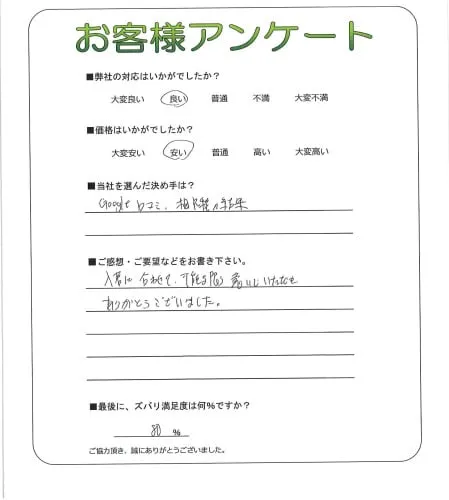 お客様アンケート
■弊社の対応はいかがでしたか?
大変良い 良い 普通 不満 大変不満
■価格はいかがでしたか?
大変安い 安い 普通 高い 大変高い
■当社を選んだ決め手は?
Google 口コミ、相見積の結果
■ご感想・ご要望などをお書き下さい。
入居に合わせて、
ありがとうございました。
■最後に、ズバリ満足度は何%ですか?
80 %
ご協力頂き、誠にありがとうございました。